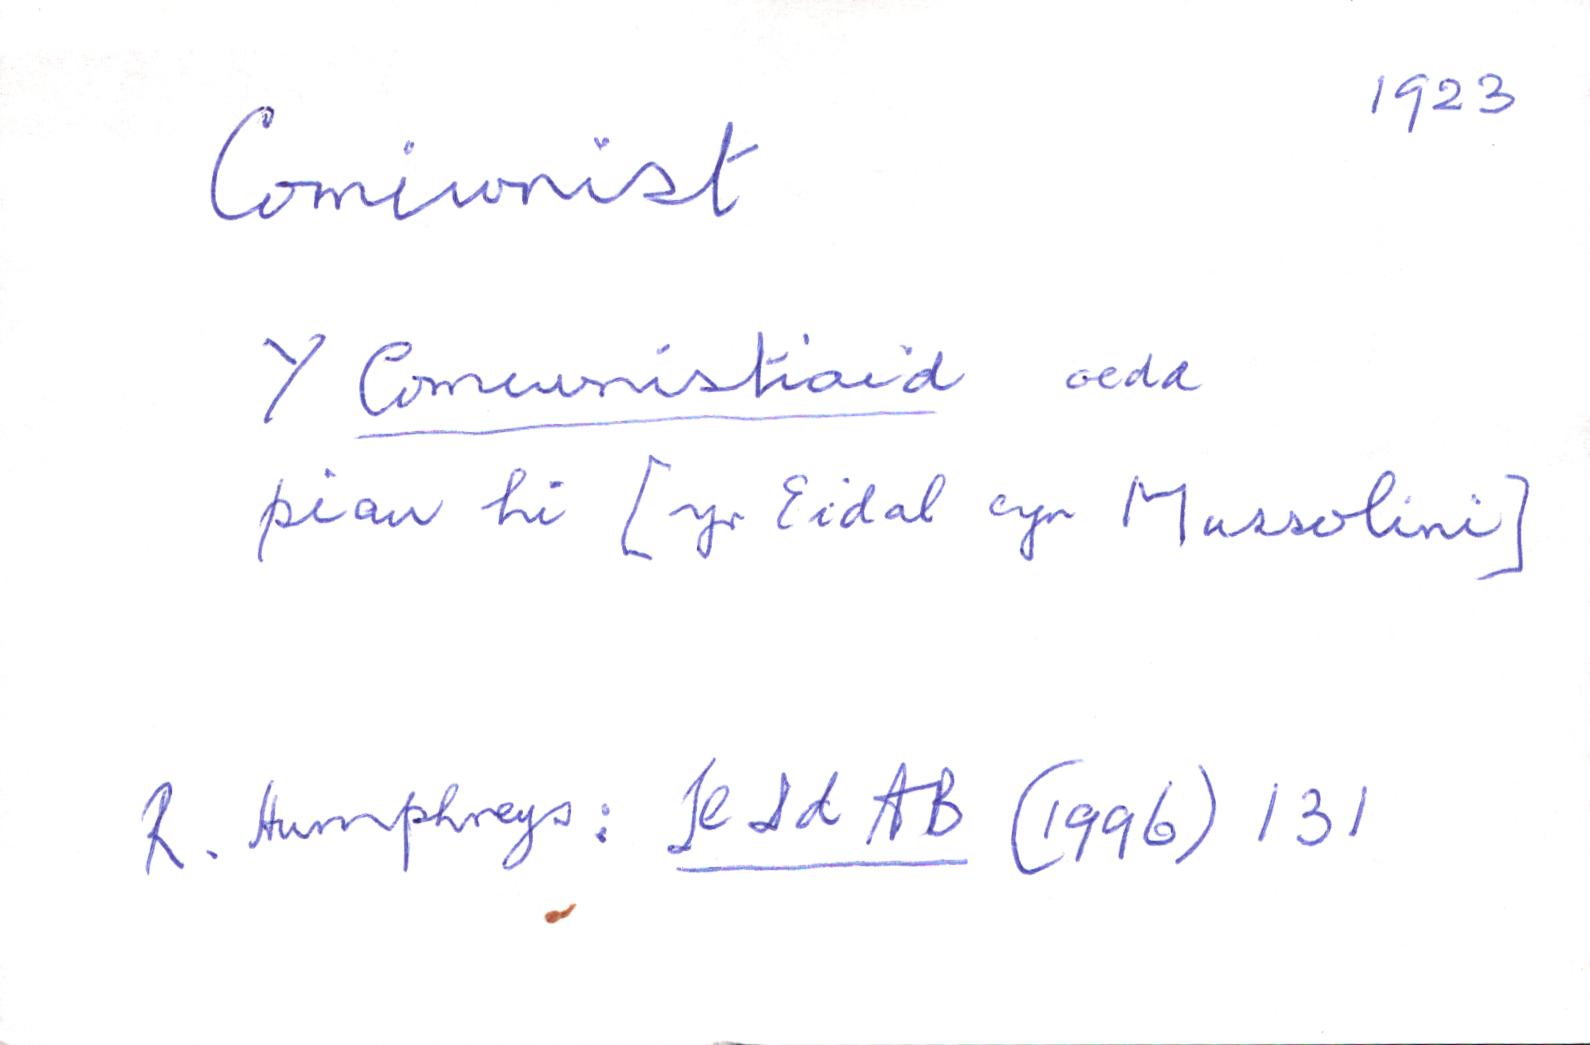 1923
Comiwnist
Y Comiwnistiaid oedd
piau hi [yr Eidal cyn Mussolini]
R. Humphreys: AB (1996) 131